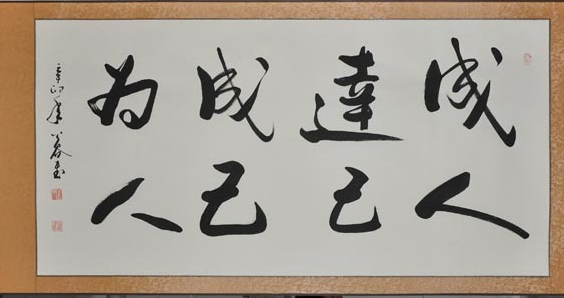 成人
達己
成己
为人
辛卯年